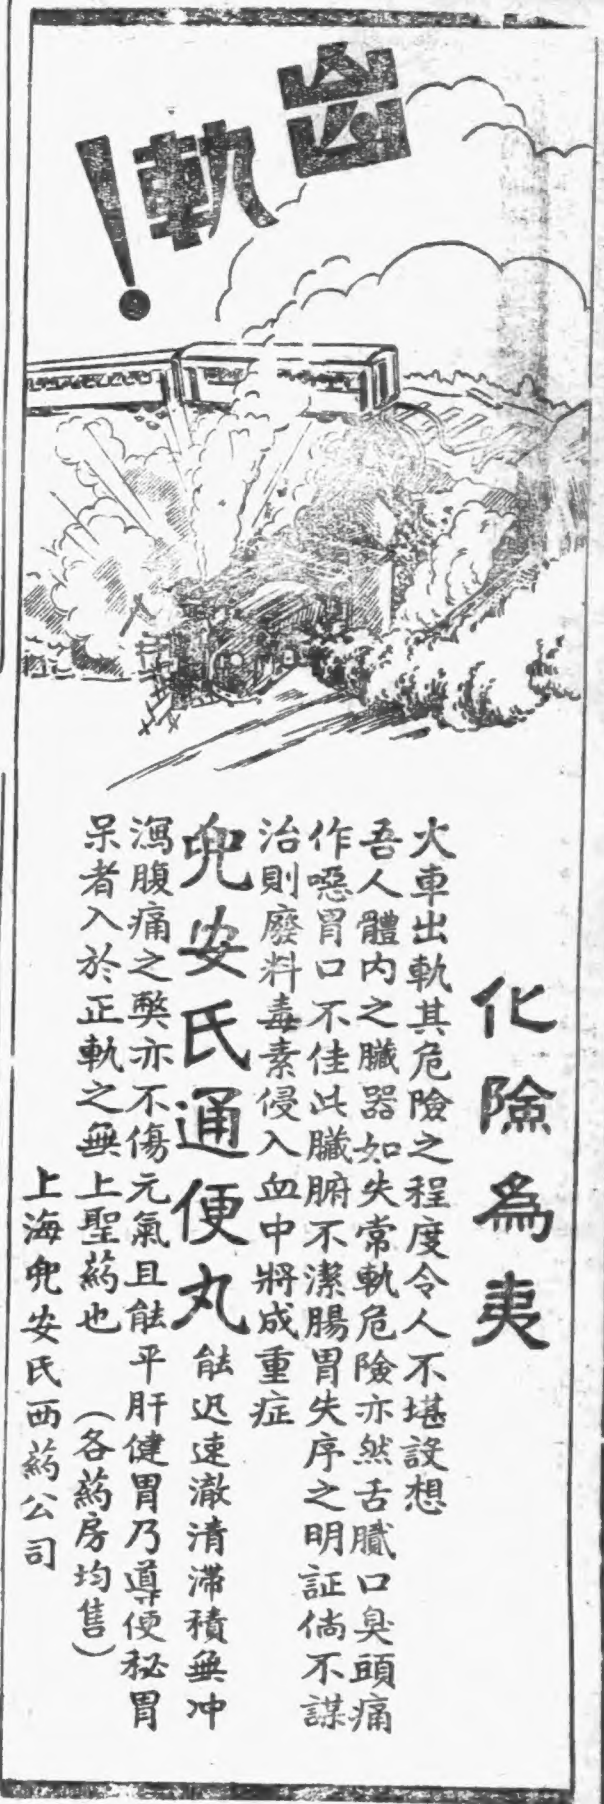 出軌!
化險為夷
火車出軌其危險之程度令人不堪設想
吾人體內之臟器如失常軌危險亦然舌膩口臭頭痛
作噁胃口不佳此臟腑不潔腸胃失序之明証倘不謀
治則廢料毒素侵入血中將成重症
兜安氏通便丸 能迅速澈清滯積無冲
瀉腹痛之弊亦不傷元氣且能平肝健胃乃導便秘胃
呆者入於正軌之無上聖藥也 (各藥房均售)
上海兜安氏西藥公司